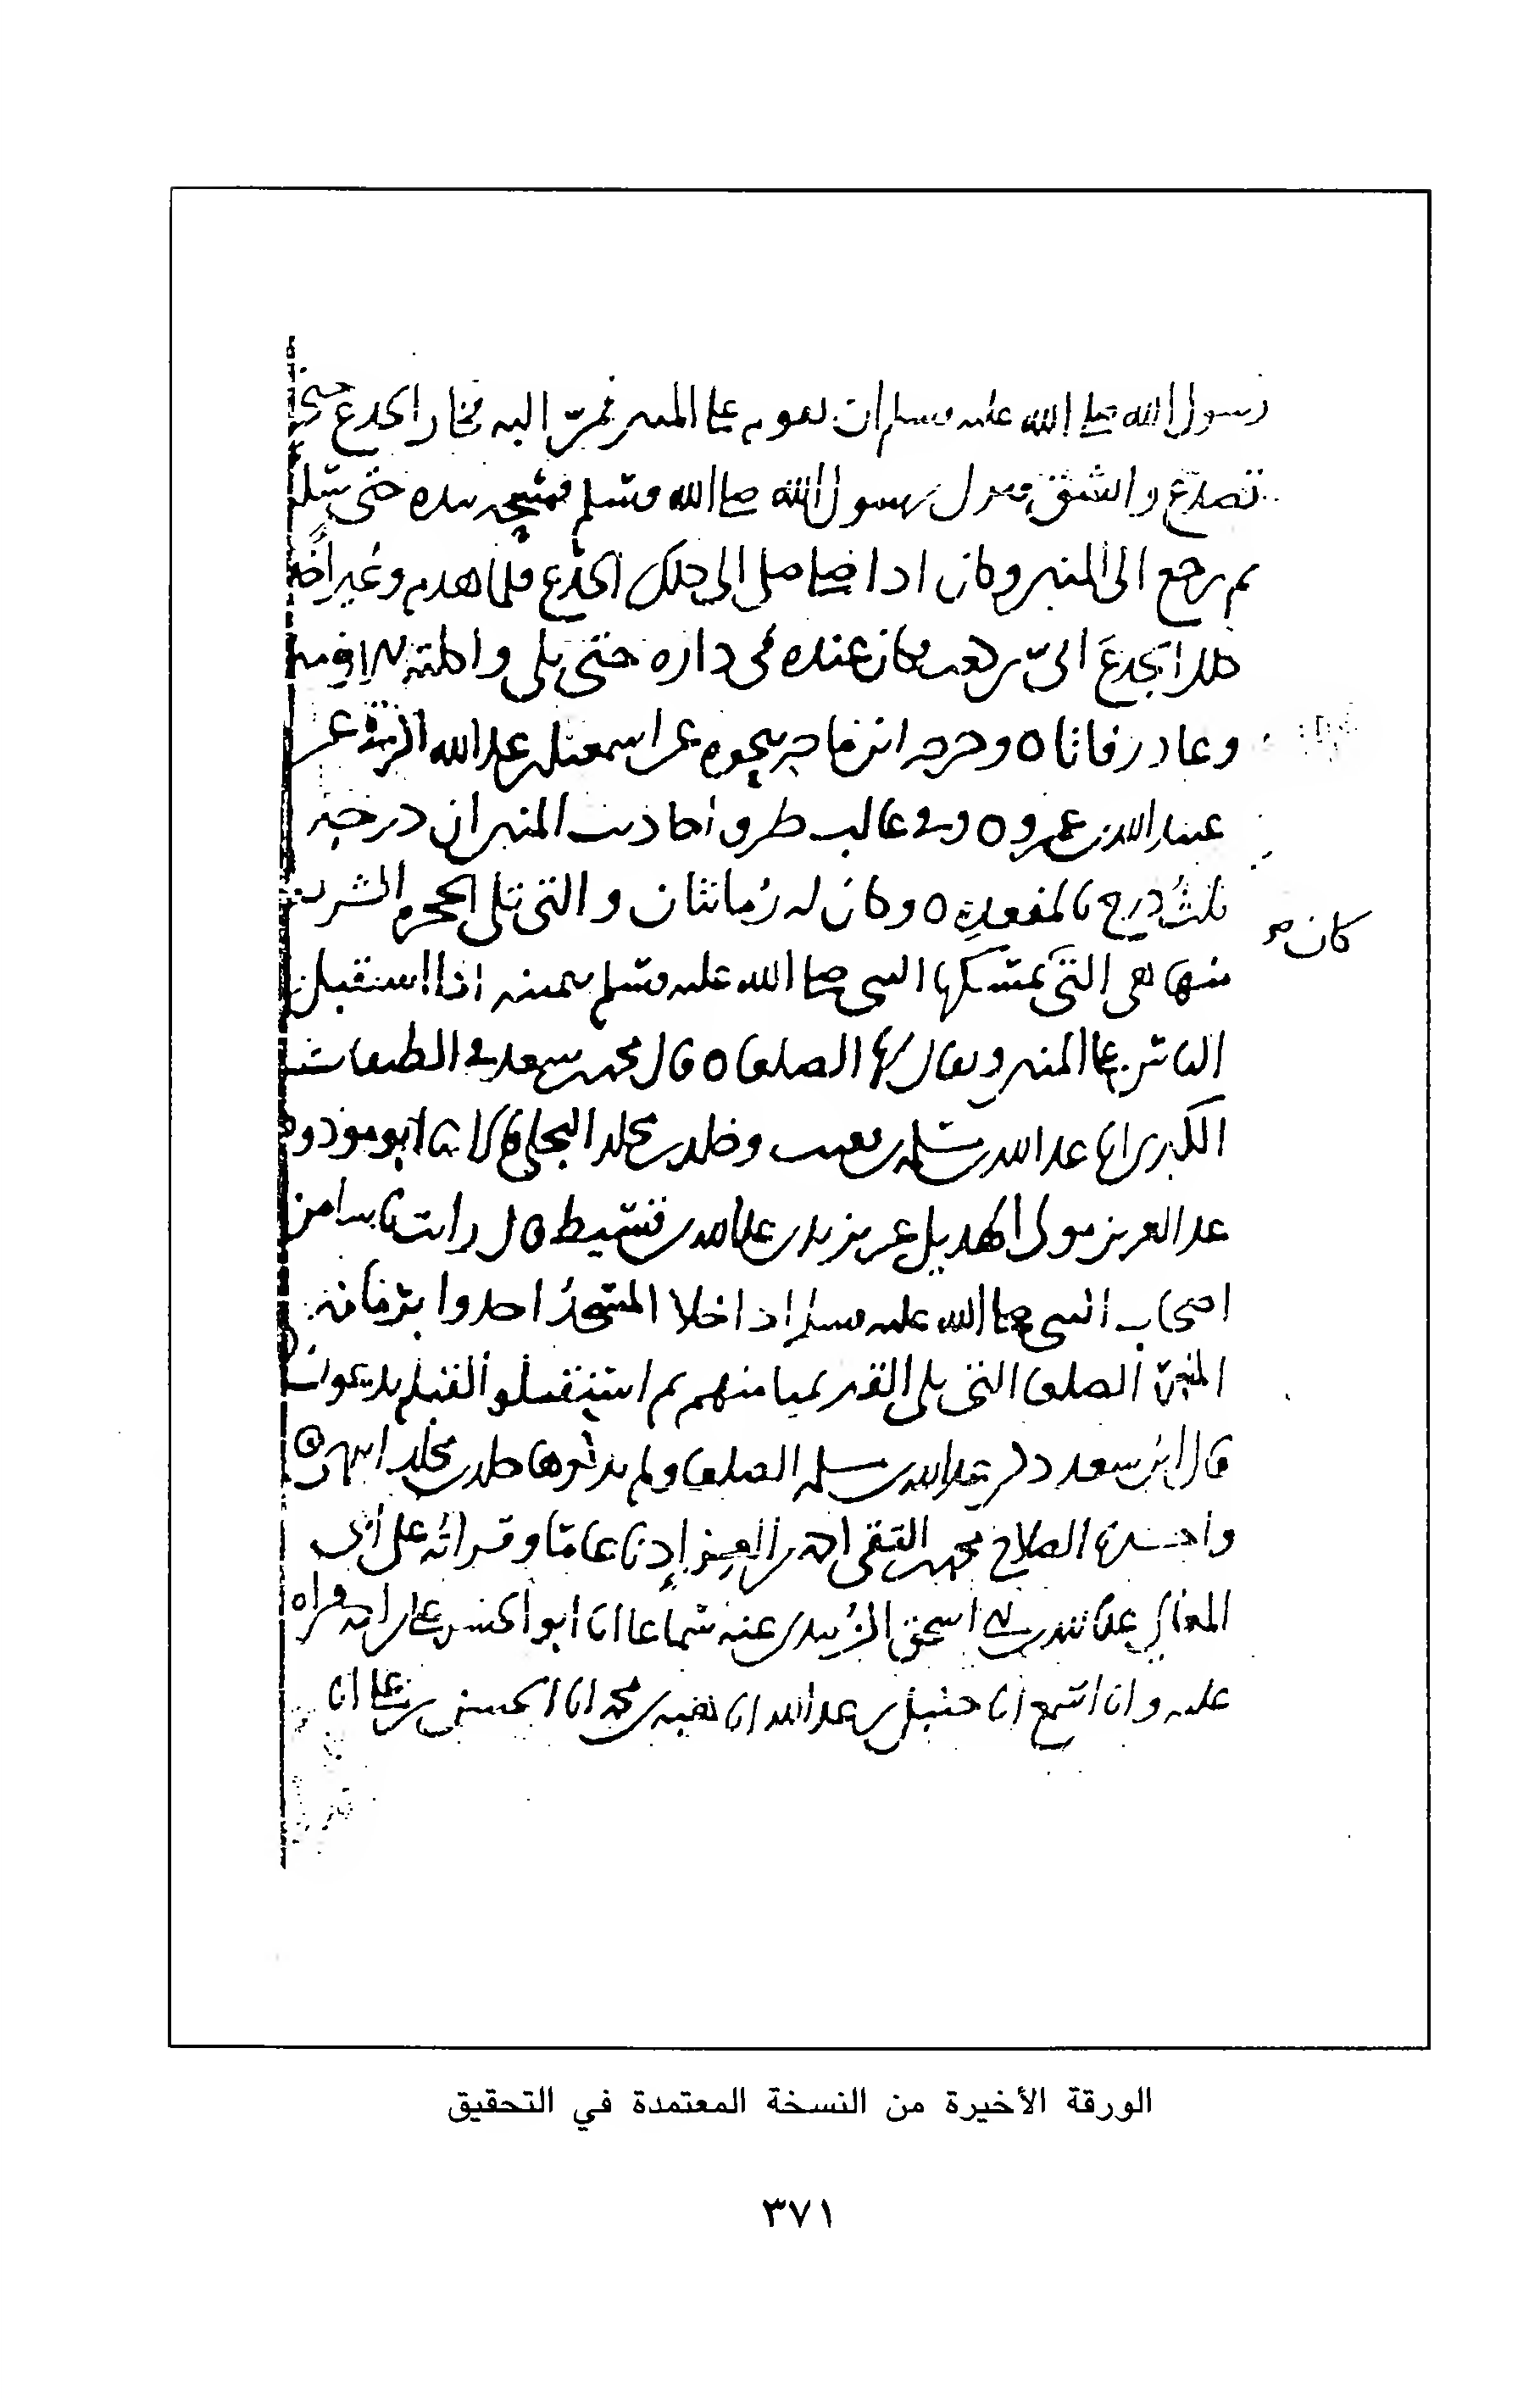 رسول الله صلى الله عليه وسلم ان يقوم على المنبر فمرّ اليه فخار الجذع حتى
تصدّع وانشق فنزل رسول الله صلى الله وسلم فمسحه بيده حتى سكن
ثم رجع الى المنبر وكان اذا صلى صلى الى ذلك الجذع فلما هدم وغير اخذ
ذلك الجذع ابيّ بن كعب فكان عنده في داره حتى بلي واكلته الارضه
وعاد رفاتا ٥ وخرجه ابن ماجه بنحوه عن اسمعيل بن عبد الله الرقي عن
عبيد الله بن عمرو ٥ وفي غالب طرق احاديث المنبر ان درجه
كان
ثلث درج بالمقعده ٥ وكان له رمانتان والتي تلي الحجره الشريفه
منها هي التي يمسكها النبي صلى الله عليه وسلم بيمينه اذا استقبل
الناس على المنبر ويقال لها الصلعا ٥ قال محمد بن سعد في الطبقات
الكبرى انا عبد الله بن مسلمه بن قعنب وخلد بن مخلد البجلي قالا ثنا ابو مودود
عبد العزيز مولى الهذيل عن يزيد بن عبد الله بن قسيط قال رايت ناسا من
اصحاب النبي صلى الله عليه وسلم اذا خلا المسجد اخذوا برمانة
المنبر الصلعا التي تلي القبر بميامنهم ثم استقبلوا القبله يدعون
قال ابن سعد ذكر عبد الله بن مسلمه الصلعا ولم يذكرها خلد بن مخلد انتهى
واخبرنا الصلاح محمد بن التقي احمد بن العز إذنا عاما وقراته على ابي
المعالي عبد الله بن ابي اسحق الزبيدي عنه سماعا انا ابو الحسن علي بن احمد قراه
عليه وانا اسمع انا حنبل بن عبد الله انا هبه بن محمد انا الحسن بن علي انا
الورقة الأخيرة من النسخة المعتمدة في التحقيق
٣٧١